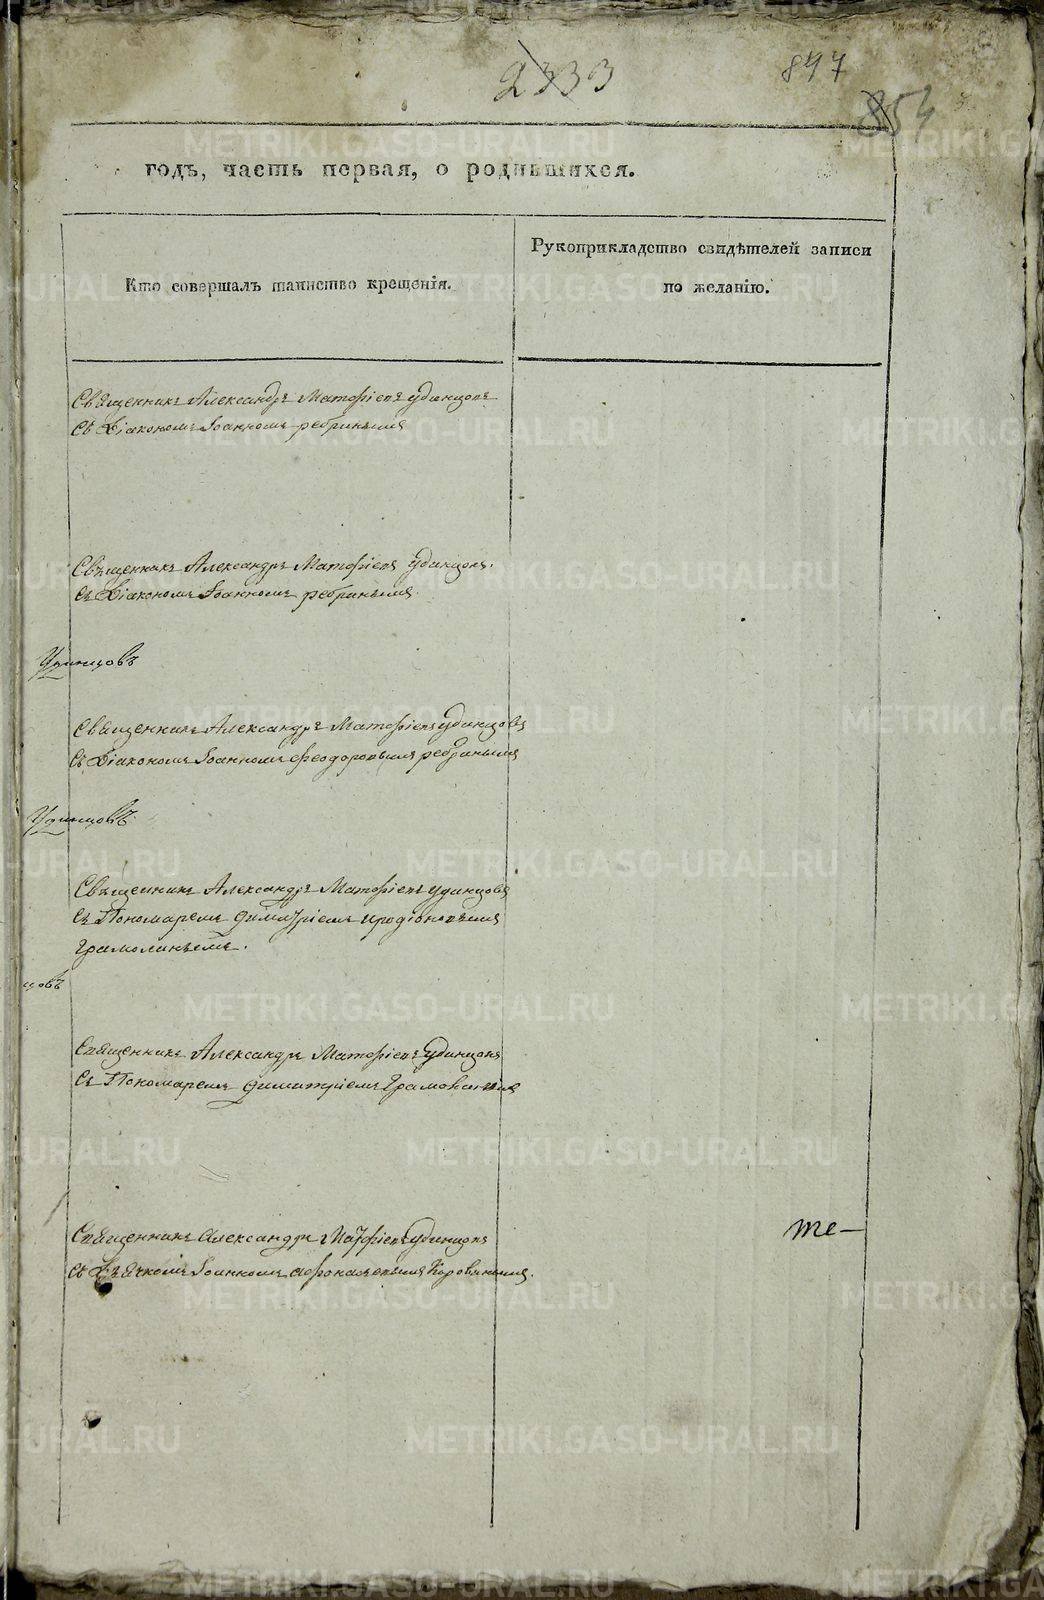 2333
847
854
годъ, часть первая, о родившихся.
Кто совершалъ таинство крещенія.
Рукоприкладство свидѣтелей записи
по желанію.
Священникъ Александръ Матфіевъ Удинцовъ
съ Діакономъ Іоанномъ ребринымъ
Священникъ Александръ Матфіевъ Удинцовъ.
съ Діакономъ Іоанномъ ребринымъ.
Удинцовъ
Священникъ Александръ Матфіевъ Удинцовъ
съ Діакономъ Іоанномъ Феодоровымъ ребринымъ
Удинцовъ
Священникъ Александръ Матфіевъ Удинцовъ
съ Пономаремъ Димитріемъ иродіоновымъ
цовъ
Священникъ Александръ Матфіевъ Удинцовъ
съ Пономаремъ Димитріемъ
Священникъ Александръ Матфіевъ Удинцовъ
съ Дьячкомъ Іоанномъ
те-
METRIKI.GASO-URAL.RU